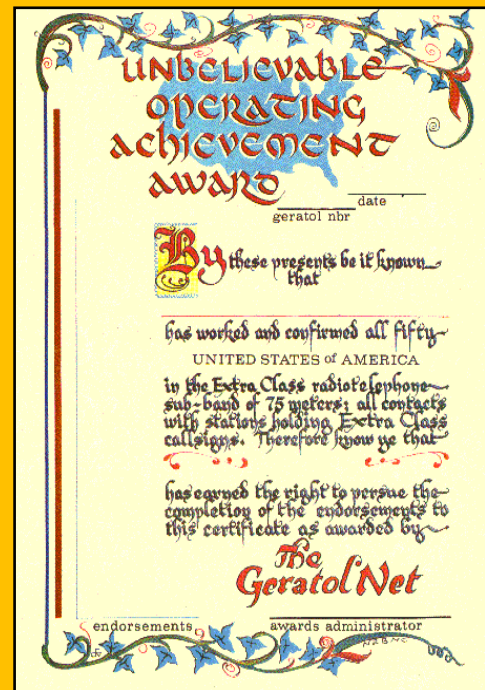 UNBELIEVABLE
OPERATING
ACHIEVEMENT
AWARD
date
geratol nbr
By these presents be it known
that
has worked and confirmed all fifty
UNITED STATES of AMERICA
in the Extra Class radiotelephone
sub-band of 75 meters; all contacts
with stations holding Extra Class
callsigns. Therefore know ye that
has earned the right to persue the
completion of the endorsements to
this certificate as awarded by
The
Geratol Net
endorsements
awards administrator